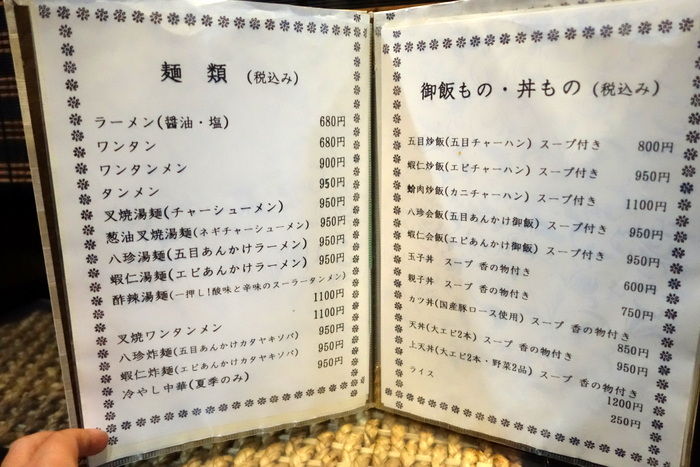 麺 類 (税込み)
ラーメン(醤油・塩) 680円
ワンタン 680円
ワンタンメン 900円
タンメン 950円
叉焼湯麺(チャーシューメン) 950円
葱油叉焼湯麺(ネギチャーシューメン) 950円
八珍湯麺(五目あんかけラーメン) 950円
蝦仁湯麺(エビあんかけラーメン) 950円
酢辣湯麺(一押し!酸味と辛味のスーラータンメン) 1100円
叉焼ワンタンメン 1100円
八珍炸麺(五目あんかけカタヤキソバ) 950円
蝦仁炸麺(エビあんかけカタヤキソバ) 950円
冷やし中華(夏季のみ) 950円
御飯もの・丼もの (税込み)
五目炒飯(五目チャーハン) スープ付き 800円
蝦仁炒飯(エビチャーハン) スープ付き 950円
蟹肉炒飯(カニチャーハン) スープ付き 1100円
八珍会飯(五目あんかけ御飯) スープ付き 950円
蝦仁会飯(エビあんかけ御飯) スープ付き 950円
玉子丼 スープ 香の物付き 600円
親子丼 スープ 香の物付き 750円
カツ丼(国産豚ロース使用) スープ 香の物付き 850円
天丼(大エビ2本) スープ 香の物付き 950円
上天丼(大エビ2本・野菜2品) スープ 香の物付き 1200円
ライス 250円